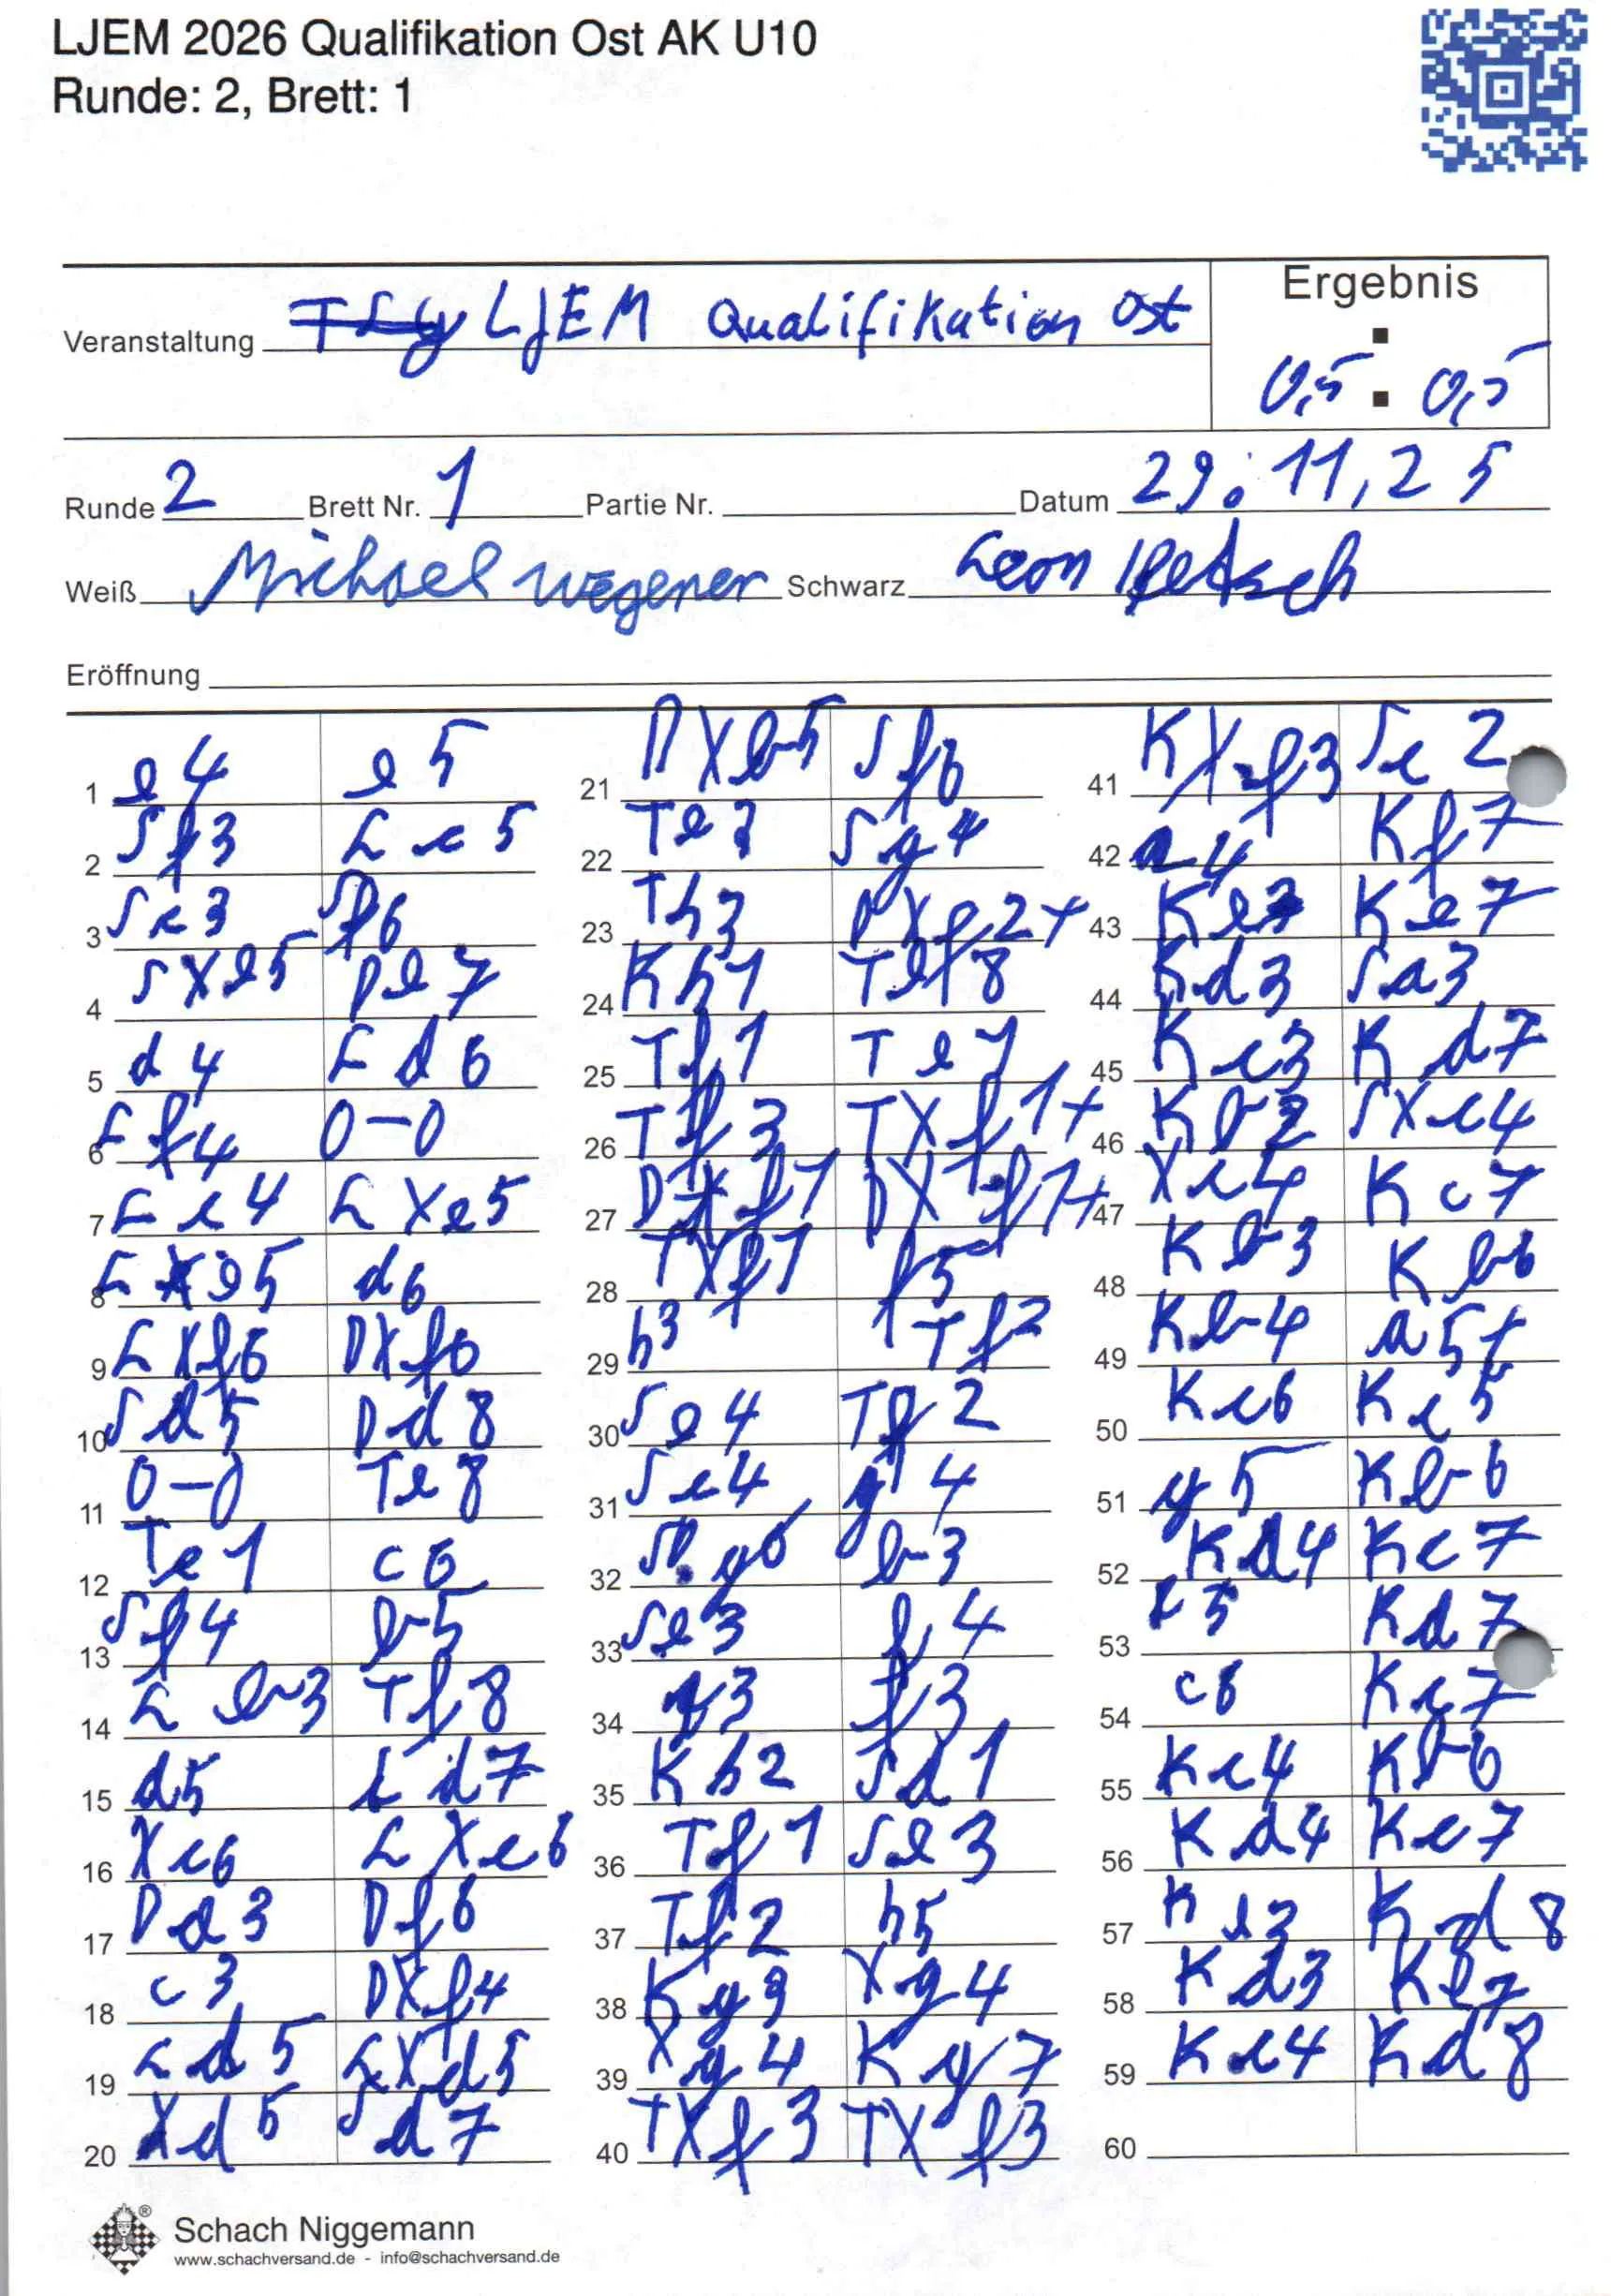 LJEM 2026 Qualifikation Ost AK U10
Runde: 2, Brett: 1
Veranstaltung LJEM Qualifikation Ost
Ergebnis
0,5 : 0,5
Runde 2 Brett Nr. 1 Partie Nr. Datum 29.11,25
Weiß Michael Wegener Schwarz Leon
Eröffnung
1 e4 e5
2 Sf3 Lc5
3 Sc3 Sf6
4 SXe5 De7
5 d4 Ld6
6 Lf4 0-0
7 Lc4 LXe5
8 LXe5 d6
9 LXf6 DXf6
10 Sd5 Dd8
11 0-0 Te8
12 Te1 c6
13 Sf4 b5
14 Lb3 Tf8
15 d5 Ld7
16 Xc6 LXc6
17 Dd3 Df6
18 c3 DXf4
19 Ld5 LXd5
20 Xd5 Sd7
21 DXb5 Sf6
22 Te3 Sg4
23 Th3 DXf2+
24 Kh1 Tef8
25 Tf1 Te1
26 Tf3 TXf1+
27 DXf1 DXf1+
28 TXf1 f5
29 h3 Tf2
30 Se4 Tf2
31 Sc4 g4
32 g6 b3
33 Se3 f4
34 g3 f3
35 Kh2 Sd1
36 Tf1 Se3
37 Tf2 h5
38 Kg3 Xg4
39 Xg4 Kg7
40 TXf3 TXf3
41 KXf3 Sc2
42 a4 Kf7
43 Ke3 Ke7
44 Kd3 Sa3
45 Kc3 Kd7
46 Kb2 SXc4
47 Xc4 Kc7
48 Kb3 Kb6
49 Kb4 a5+
50 Kc6 Kc5
51 g5 Kb6
52 Kd4 Kc7
53 c5 Kd7
54 c6 Kc7
55 Kc4 Kb6
56 Kd4 Kc7
57 Ke3 Kd8
58 Kd3 Ke7
59 Kc4 Kd8
60
Schach Niggemann
www.schachversand.de - info@schachversand.de